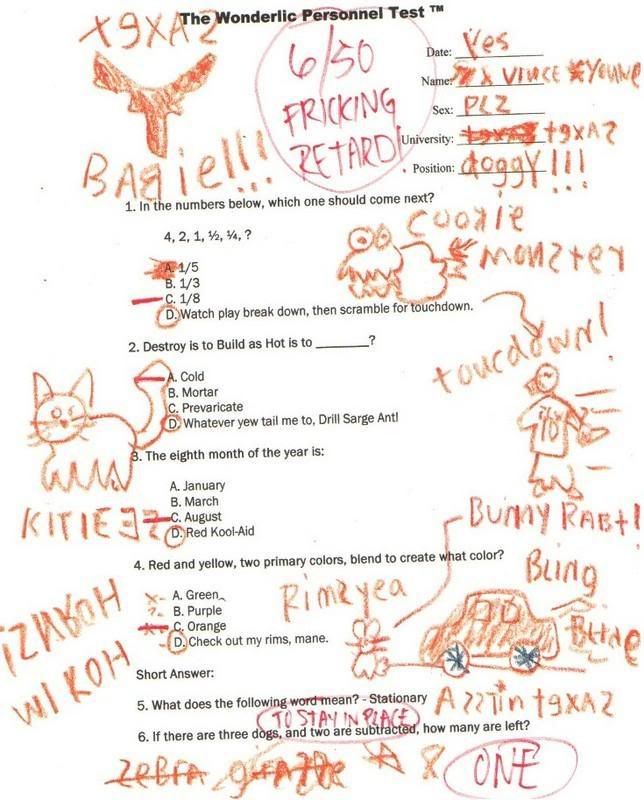 The Wonderlic Personnel Test ™
t9xA2
6/50
FRICKING
RETARD!
BAGie!!!
Date: Yes
Name: VINCE YOUNG
Sex: PLZ
University: t9xA2
Position: doggY!!!
1. In the numbers below, which one should come next?
4, 2, 1, ½, ¼, ?
A. 1/5
B. 1/3
C. 1/8
D. Watch play break down, then scramble for touchdown.
COOKIE
MONZTER
2. Destroy is to Build as Hot is to ________?
A. Cold
B. Mortar
C. Prevaricate
D. Whatever yew tail me to, Drill Sarge Ant!
toucdown!
10
3. The eighth month of the year is:
A. January
B. March
C. August
D. Red Kool-Aid
KITIE
BUNNY RABt!
4. Red and yellow, two primary colors, blend to create what color?
A. Green
B. Purple
C. Orange
D. Check out my rims, mane.
RimzYea
Bling
WI KOH
Short Answer:
5. What does the following word mean? - Stationary
AZZTin t9xA2
TO STAY IN PLACE
6. If there are three dogs, and two are subtracted, how many are left?
zebra
8
ONE